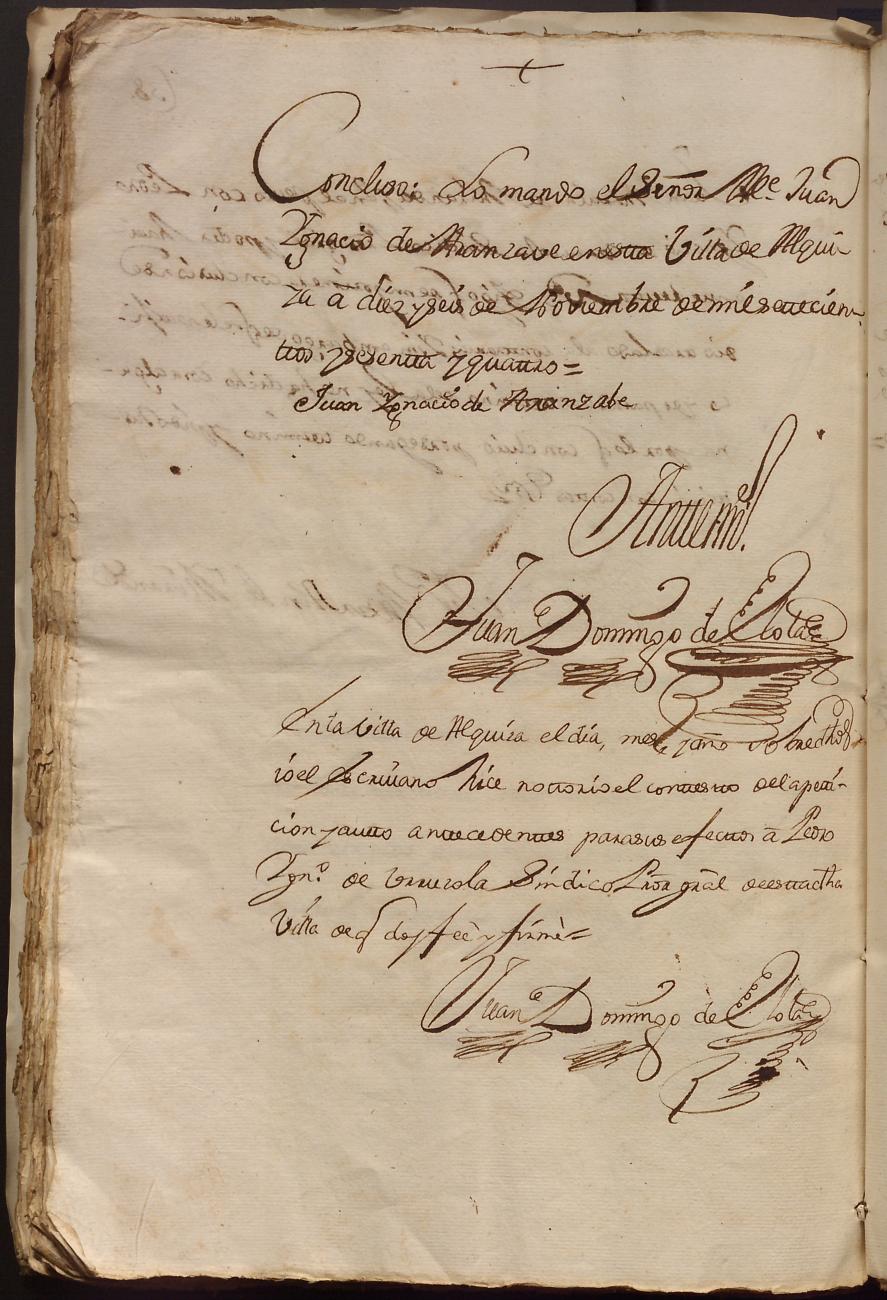 +
Conclusa: Lo mando el Señor Alce. Juan
Ygnacio de Aranzave en esta Villa de Alqui-
za a diez y seis de Noviembre de mil setecien-
ttos y sesentta y quattro=
Juan Ygnacio de Aranzabe
Antte mi
Juan Domingo de
En la Villa de Alquiza el dia, mes, y año sobredhos
io el Escrivano hice nottorio el contesto de la peti-
cion y autto antecedenttes para sus efecttos a Pedro
Ygn.º de Urruzola Sindico Pror gral de estta dha
Villa de q doy feè y firmè=
Juan Domingo de